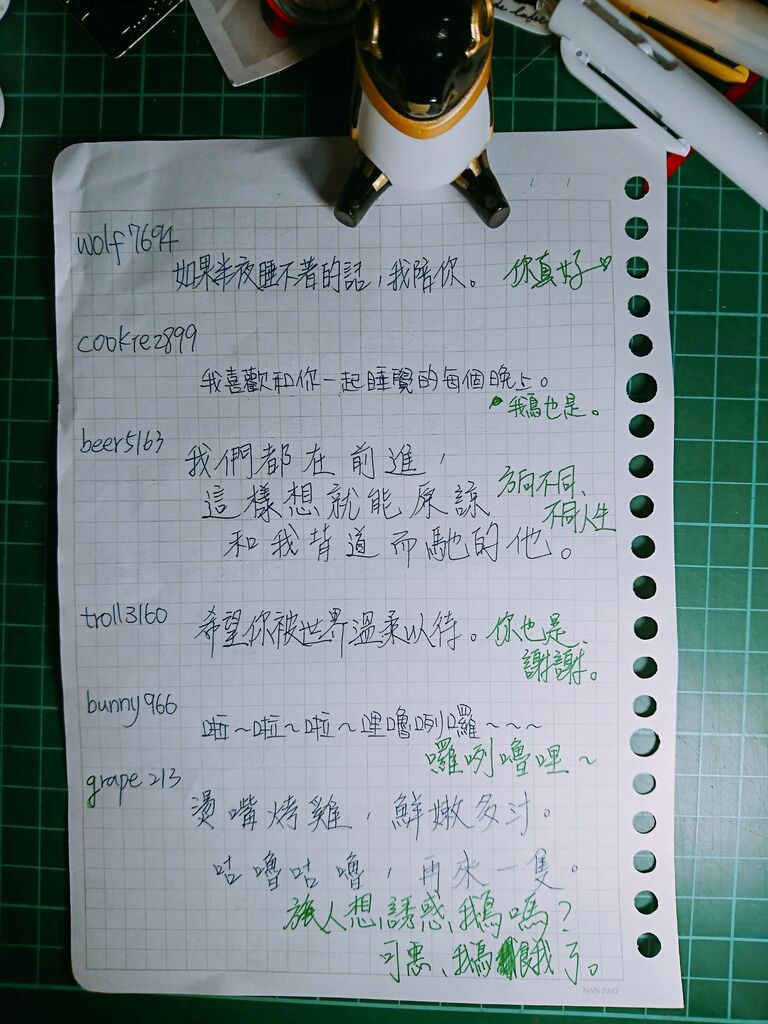 wolf7694
如果半夜睡不著的話,我陪你。 你真好♡
cookie2899
我喜歡和你一起睡覺的每個晚上。
鵝也是。
beer5163
我們都在前進,
這樣想就能原諒 方向不同、
和我背道而馳的他。 不同人生
troll3160
希望你被世界溫柔以待。 你也是、
謝謝。
bunny966
啦~啦~啦~哩嚕咧囉~~~
囉咧嚕哩~
grape213
燙嘴烤雞,鮮嫩多汁。
咕嚕咕嚕,再來一隻。
旅人想誘惑鵝嗎?
可惡、鵝餓了。
NAN PAO